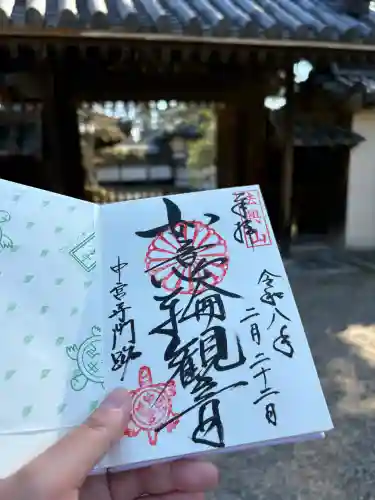 奉拝
法興山
令和八年
二月二十二日
如意輪観音
中宮寺門跡